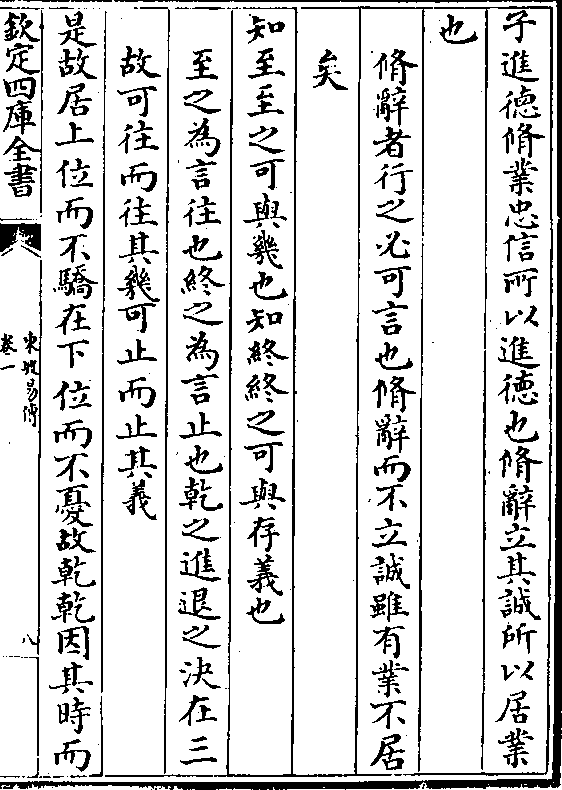 子進德脩業忠信所以進德也脩辭立其誠所以居業
也
脩辭者行之必可言也脩辭而不立誠雖有業不居
矣
知至至之可與幾也知終終之可與存義也
至之為言往也終之為言止也乾之進退之決在三
故可往而往其幾可止而止其義
是故居上位而不驕在下位而不憂故乾乾因其時而
欽定四庫全書
東坡易傳
卷一
八